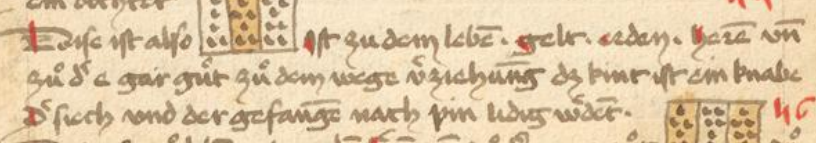 Dise ist also Ist zu dem lebē. gelt. erden. herē vn̄
zů dˢ e gar gůt zů dem wege v̾ziehunḡ dz kint ist ein knabe
Dˢ siech vnd der gefangē nach pin lidig w̾dēt.